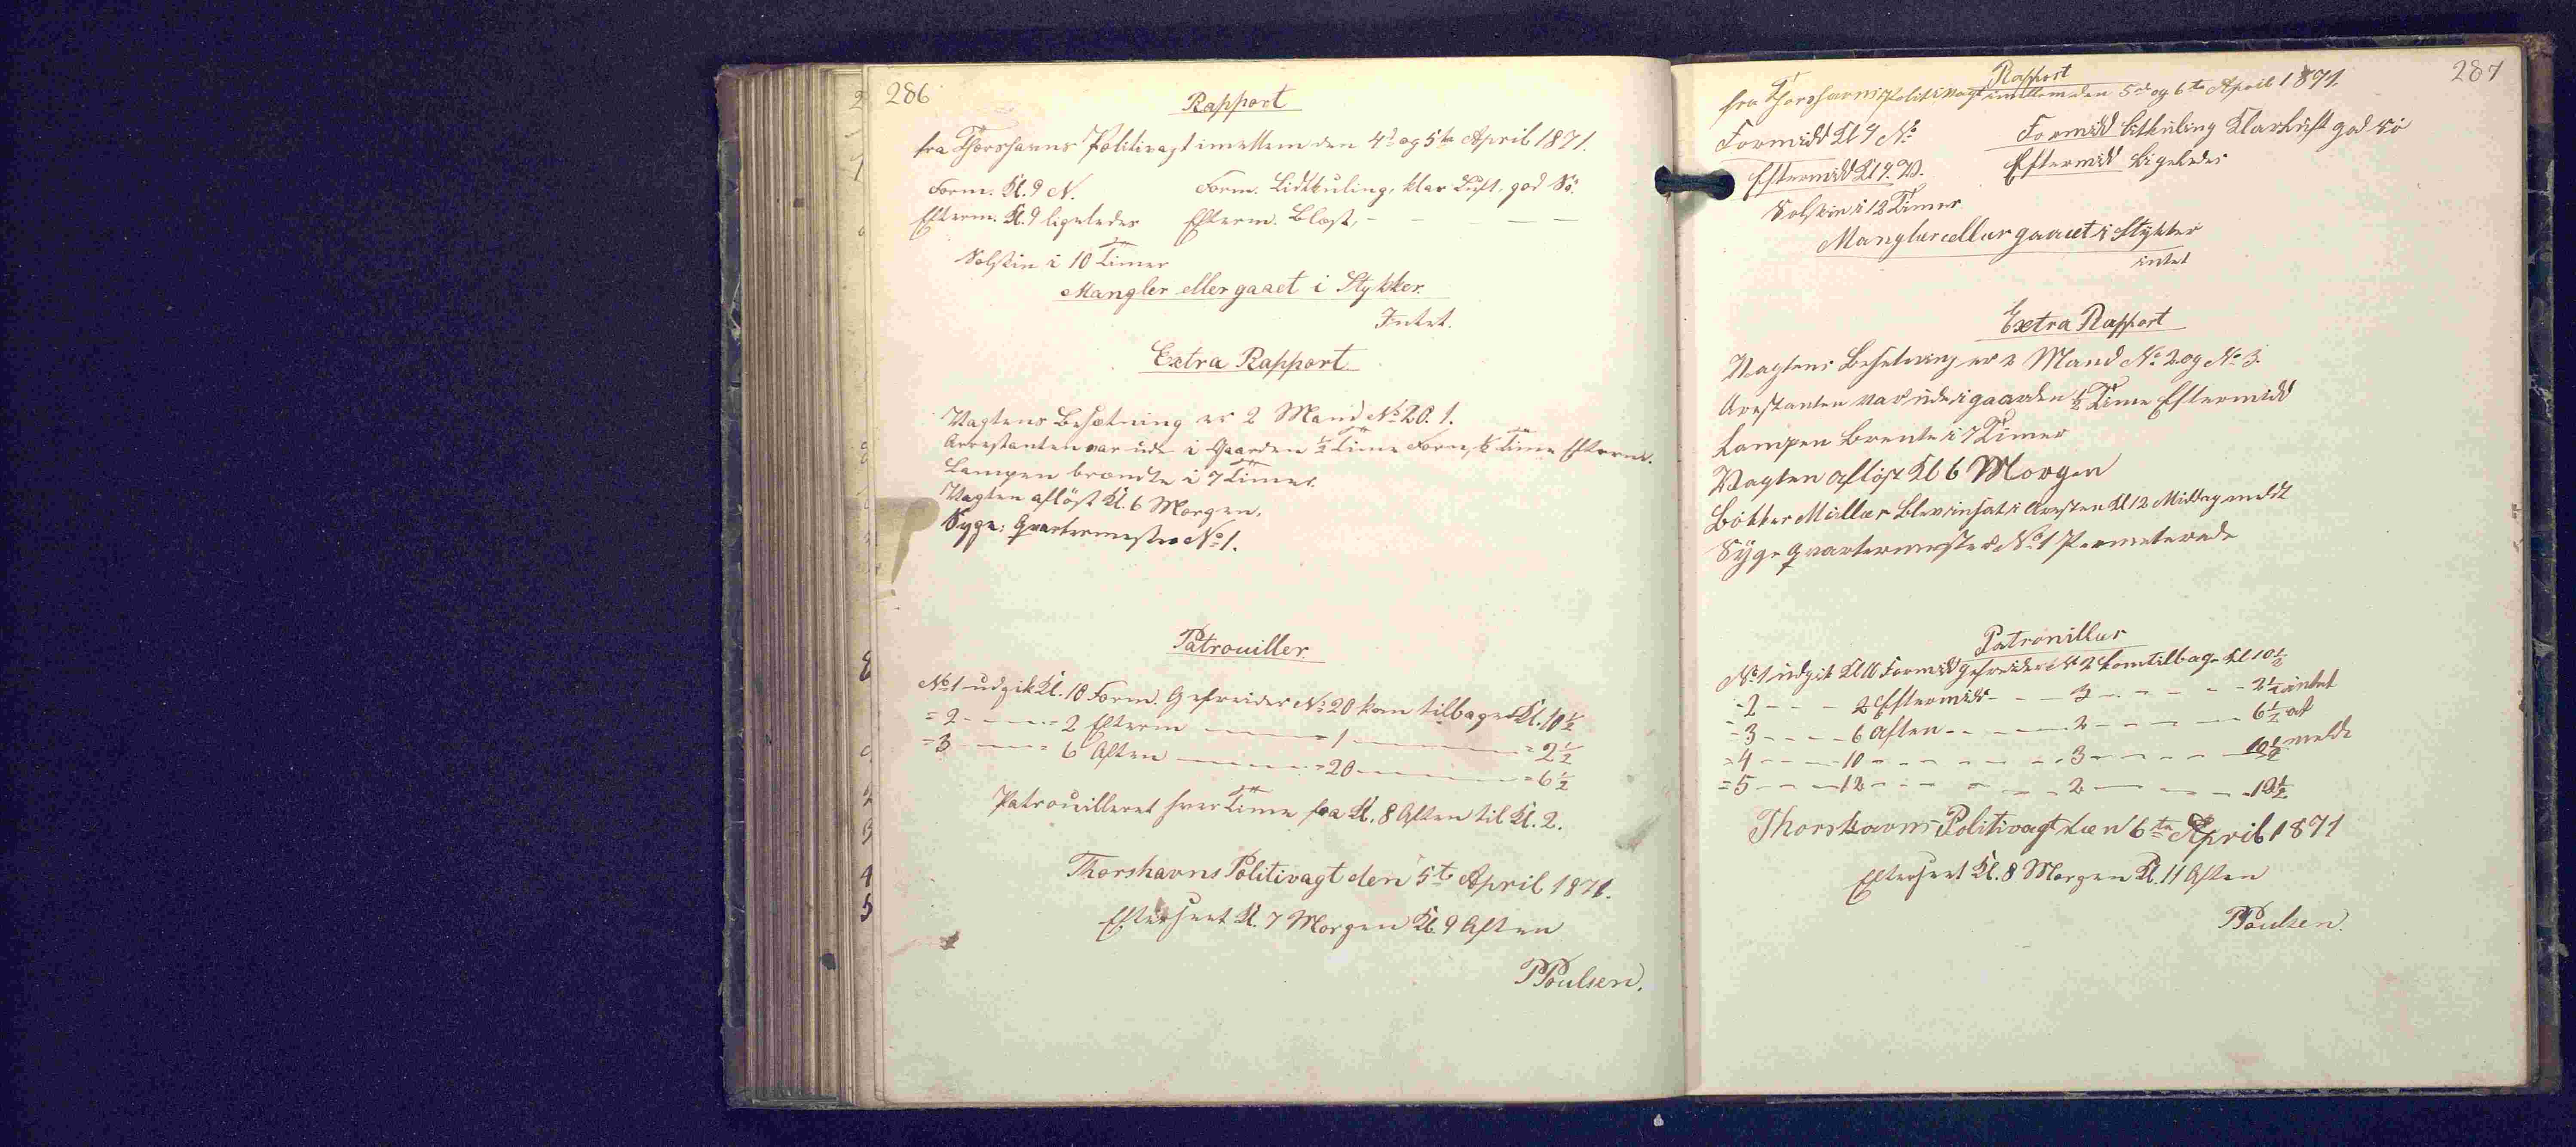 286
Rapport
fra Thorshavns Politivagt imellem den 4de og 5te April 1871.
Form. Kl. 9 N. Form. Lidt kuling, klar Luft, god Sö.
Efterm. Kl. 9 ligeledes Efterm. Blæst, - - - -
Solskin i 10 Timer
Mangler eller gaaet i Stykker.
Intet.
Extra Rapport
Vagtens Besætning er 2 Mand No. 20. 1.
Arrestanten var ude i Gaarden ½ Time Form, ½ Time Efterm.
Lampen brændte i 7 Timer.
Vagten aflöst Kl. 6 Morgen.
Syge: Qvartermester No 1.
Patrouiller.
No 1 udgik Kl. 10 Form. Gefreider No 20 kom tilbage Kl. 10½
= 2 - - - = 2 Efterm - = 1 - = 2½
= 3 - = 6 Aften - = 20 - = 6½
Patrouilleret hver Time fra Kl. 8 Aften til Kl. 2.
Thorshavns Politivagt den 5te April 1871.
Efterseet Kl. 7 Morgen Kl. 9 Aften
PPoulsen.
287
Rapport
fra Thorshavns Politivagt imellem den 5te og 6te April 1871.
Formidd Kl 9 No Formidd Litkuling Klarluft god Sö
Eftermidd Kl 9. V. Eftermidd Ligeledes
Solskin i 12 Timer
Mangler eller gaaet i Stykker
intet
Extra Rapport
Vagtens Besetning er 2 Mand No 2 og No 3.
Arestanten var ude i gaarden ½ Time Eftermidd
Lampen Brente i 7 Timer
Vagten aflöst Kl 6 Morgen
Bökker Müller Blev insat i Aresten Kl 12 Middag
Syge Qvartermester No 1
Patrouiller
No 1 udgik Kl 10 Formidd Gefreider No 2 kom tilbage Kl 10½
- 2 - - - 2 Eftermidd - - - 3 - - - - - 2½ intet
- 3 - - - 6 Aften - - - 2 - - - - 6½ at
= 4 - - - 10 - - - - - 3 - - - - 10½ melde
= 5 - - - 12 - - - - - 2 - - - - 12½
Thorshavns Politivagt den 6te April 1871
Efterseet Kl. 8 Morgen Kl. 11 Aften
PPoulsen.